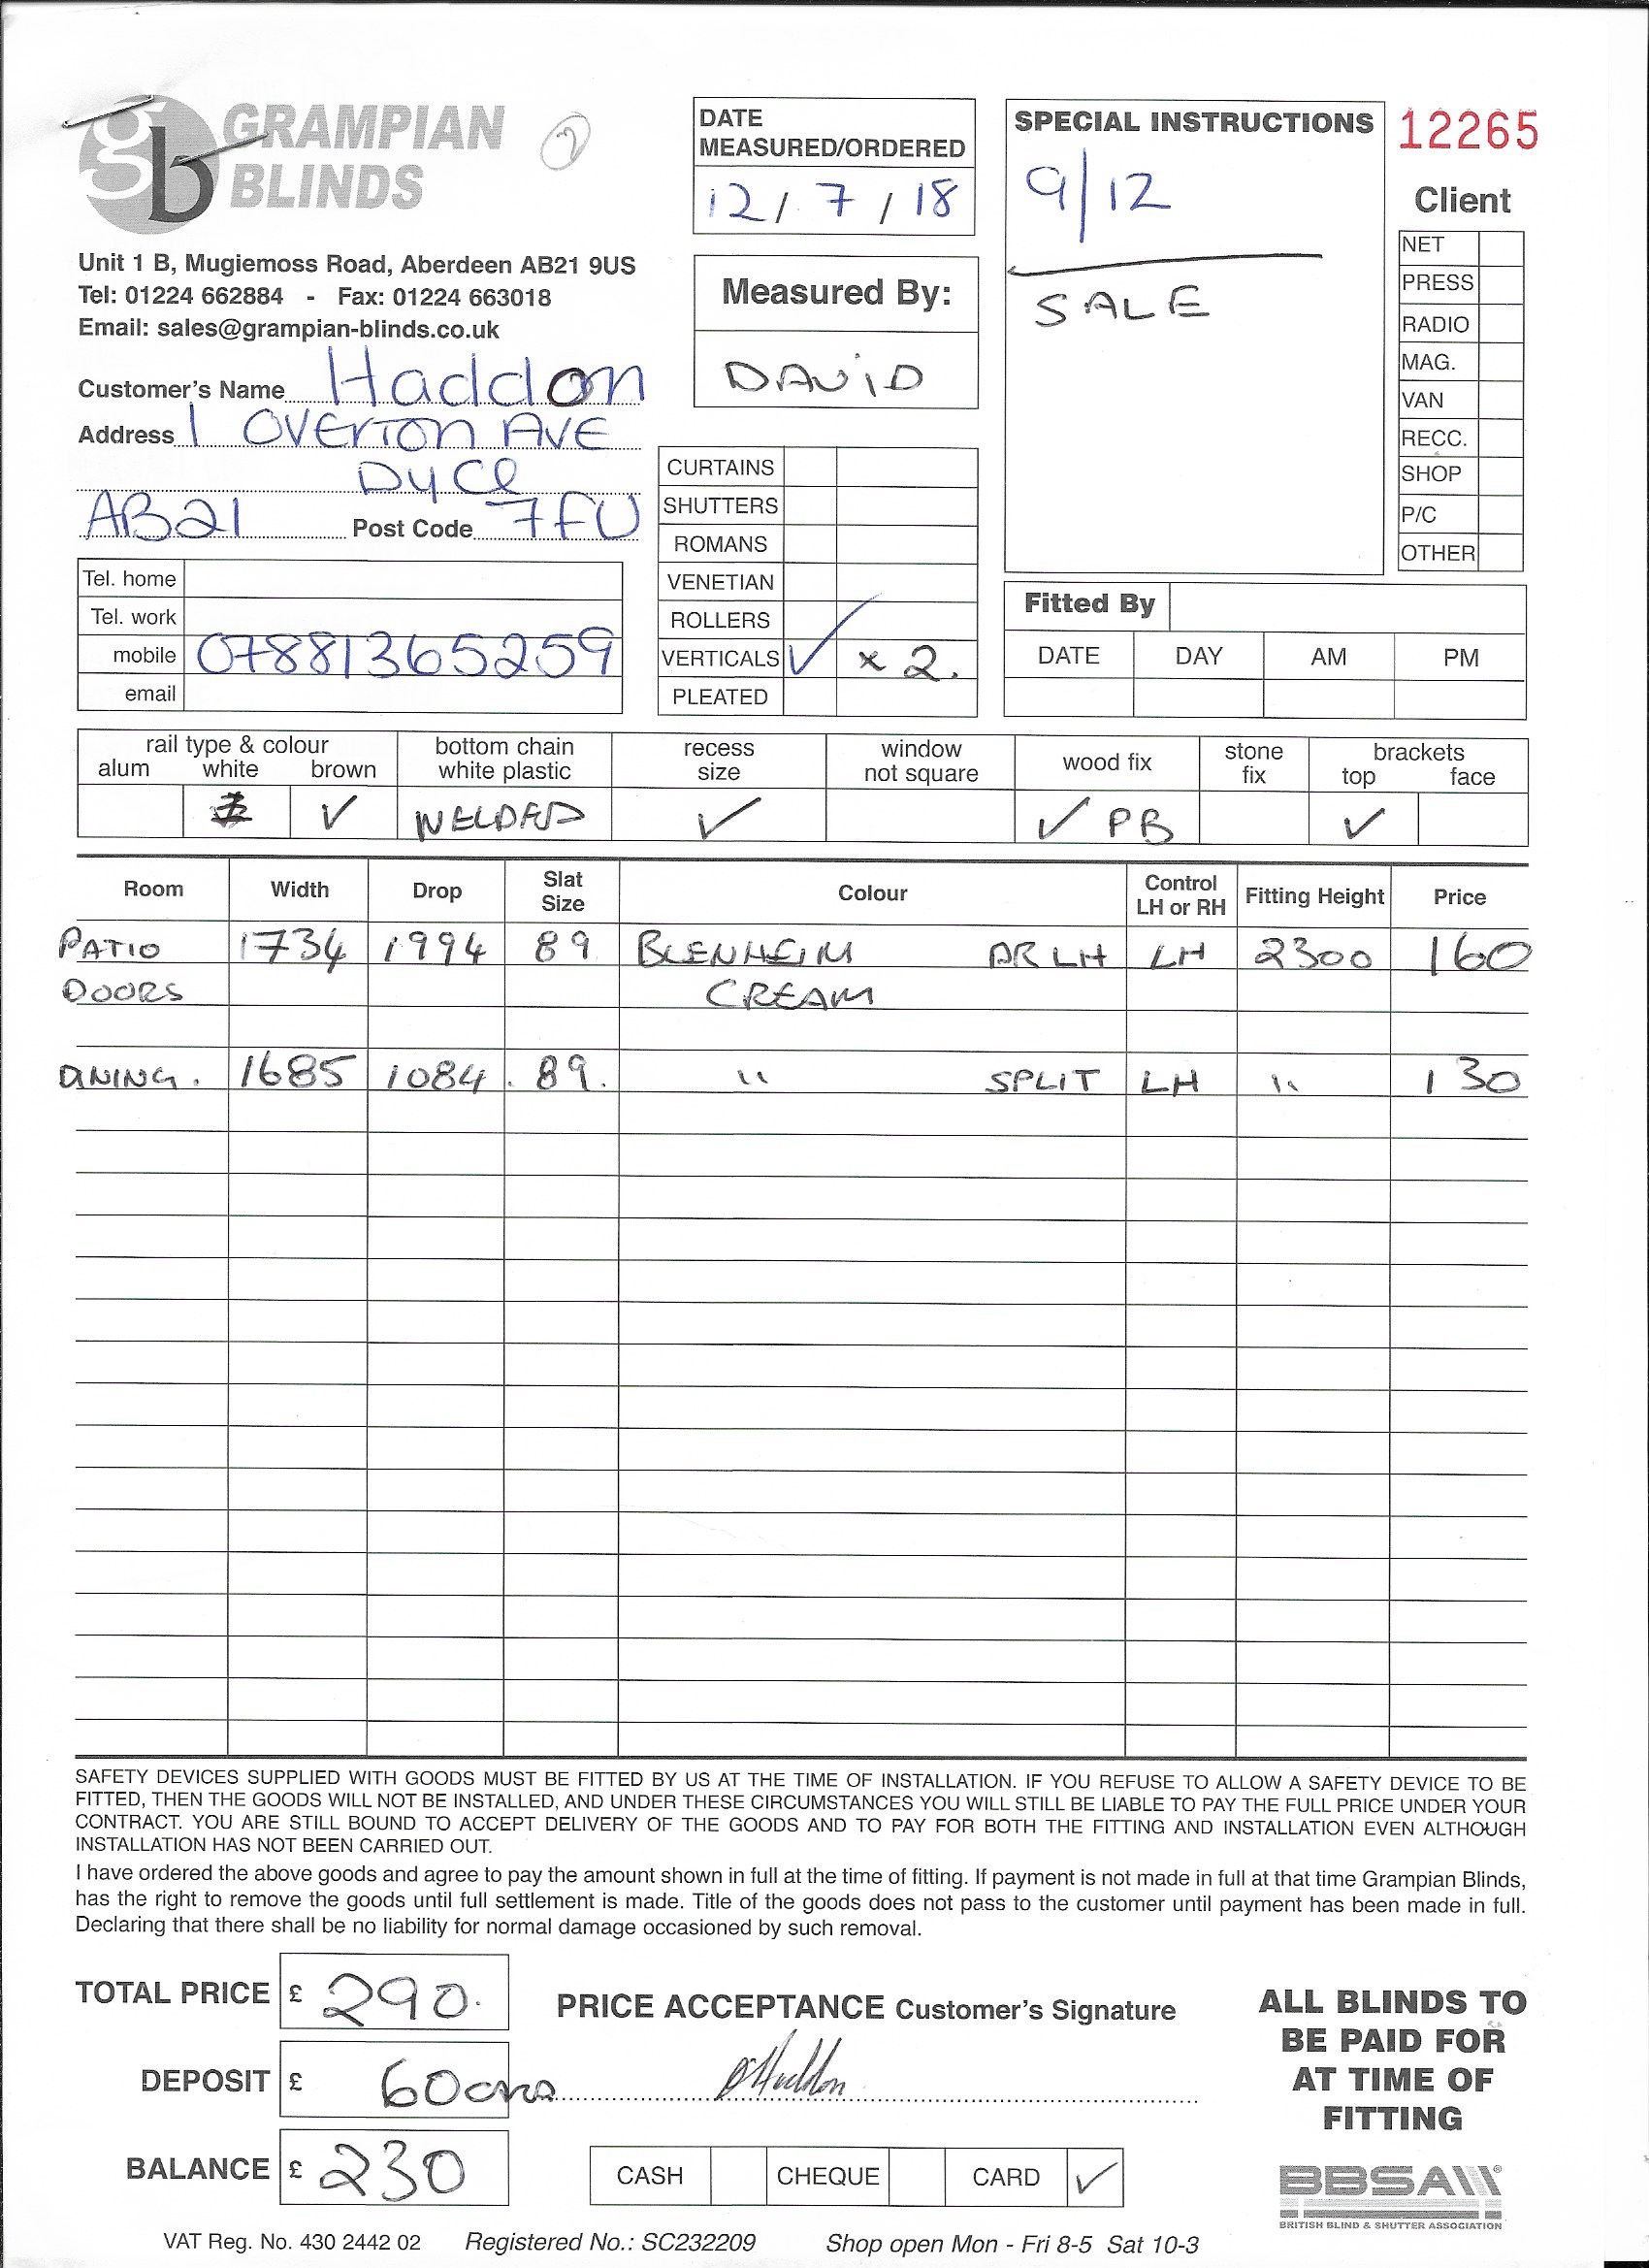 GRAMPIAN
BLINDS
gb
2
Unit 1 B, Mugiemoss Road, Aberdeen AB21 9US
Tel: 01224 662884 - Fax: 01224 663018
Email: sales@grampian-blinds.co.uk
Customer's Name Haddon
Address 1 OVERTON AVE
DYCE
AB21 Post Code 7FU
Tel. home
Tel. work
mobile 07881365259
email
DATE
MEASURED/ORDERED
12/7/18
Measured By:
DAVID
CURTAINS
SHUTTERS
ROMANS
VENETIAN
ROLLERS
VERTICALS ✓ x 2.
PLEATED
SPECIAL INSTRUCTIONS
9/12
SALE
12265
Client
NET
PRESS
RADIO
MAG.
VAN
RECC.
SHOP
P/C
OTHER
Fitted By
DATE DAY AM PM
rail type & colour bottom chain recess window wood fix stone brackets
alum white brown white plastic size not square fix top face
✓ WELDED ✓ ✓ PB ✓
Room Width Drop Slat Size Colour Control LH or RH Fitting Height Price
PATIO 1734 1994 89 BLENHEIM DR LH LH 2300 160
DOORS CREAM
DINING. 1685 1084. 89. " SPLIT LH " 130
SAFETY DEVICES SUPPLIED WITH GOODS MUST BE FITTED BY US AT THE TIME OF INSTALLATION. IF YOU REFUSE TO ALLOW A SAFETY DEVICE TO BE
FITTED, THEN THE GOODS WILL NOT BE INSTALLED, AND UNDER THESE CIRCUMSTANCES YOU WILL STILL BE LIABLE TO PAY THE FULL PRICE UNDER YOUR
CONTRACT. YOU ARE STILL BOUND TO ACCEPT DELIVERY OF THE GOODS AND TO PAY FOR BOTH THE FITTING AND INSTALLATION EVEN ALTHOUGH
INSTALLATION HAS NOT BEEN CARRIED OUT.
I have ordered the above goods and agree to pay the amount shown in full at the time of fitting. If payment is not made in full at that time Grampian Blinds,
has the right to remove the goods until full settlement is made. Title of the goods does not pass to the customer until payment has been made in full.
Declaring that there shall be no liability for normal damage occasioned by such removal.
TOTAL PRICE £ 290.
DEPOSIT £ 60
BALANCE £ 230
PRICE ACCEPTANCE Customer's Signature
Haddon
CASH CHEQUE CARD ✓
ALL BLINDS TO
BE PAID FOR
AT TIME OF
FITTING
BBSA
BRITISH BLIND & SHUTTER ASSOCIATION
VAT Reg. No. 430 2442 02 Registered No.: SC232209 Shop open Mon - Fri 8-5 Sat 10-3